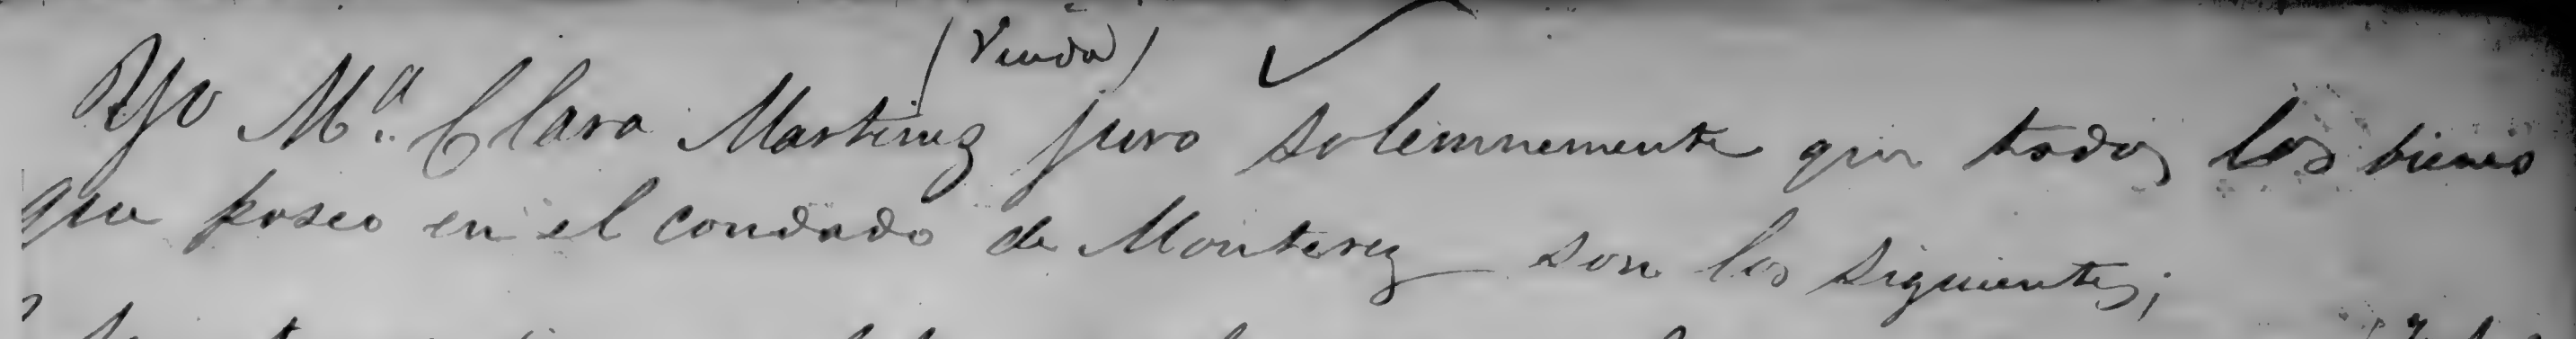 (Viuda)
Yo Mª. Clara Martinez juro solemnemente que todos los bienes
que poseo en el condado de Monterey son los siguientes;